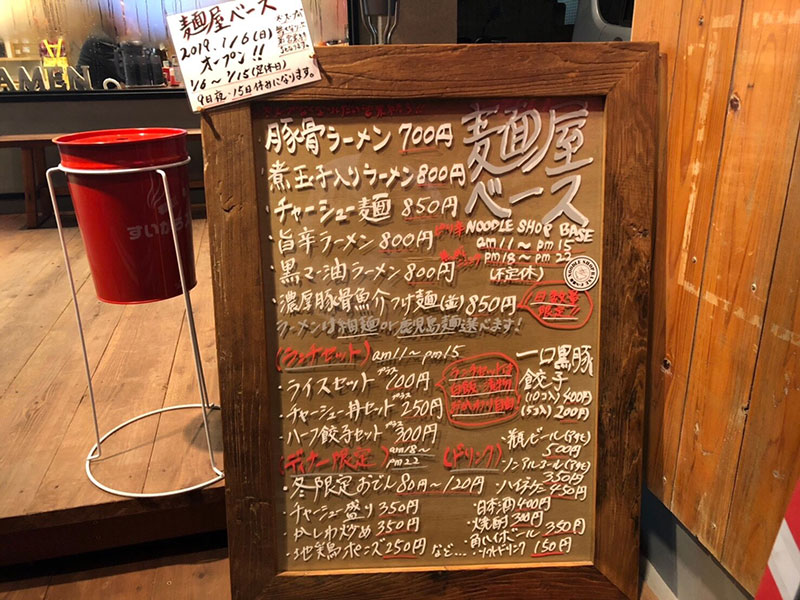 麺屋ベース
2019. 1/6 (日)
オープン!!
1/6〜1/15(定休日)
9日夜・15日休みになります。
AMEN
麺屋
ベース
NOODLE SHOP BASE
am11〜pm15
pm18〜pm22
(不定休)
豚骨ラーメン 700円
・煮玉子入りラーメン 800円
・チャーシュー麺 850円
・旨辛ラーメン 800円
・黒マー油ラーメン 800円
・濃厚豚骨魚介つけ麺(並) 850円
日数量限定!!
ラーメンは細麺or鹿児島麺選べます!
(ランチセット) am11〜pm15
・ライスセット プラス100円
・チャーシュー丼セット プラス250円
・ハーフ餃子セット プラス300円
ランチセットは
おかわり自由!
一口黒豚
餃子
(10コ入) 400円
(5コ入) 200円
(ディナー限定) am18〜pm22
・冬限定おでん 80円〜120円
・チャーシュー盛り 350円
・かしわ炒め 350円
・地鶏ポンズ 250円 など…
(ドリンク)
・瓶ビール(アサヒ) 500円
・ノンアルコール(アサヒ) 350円
・ハイネケン 450円
・日本酒 400円
・焼酎 300円
・角ハイボール 350円
・ソフトドリンク 150円